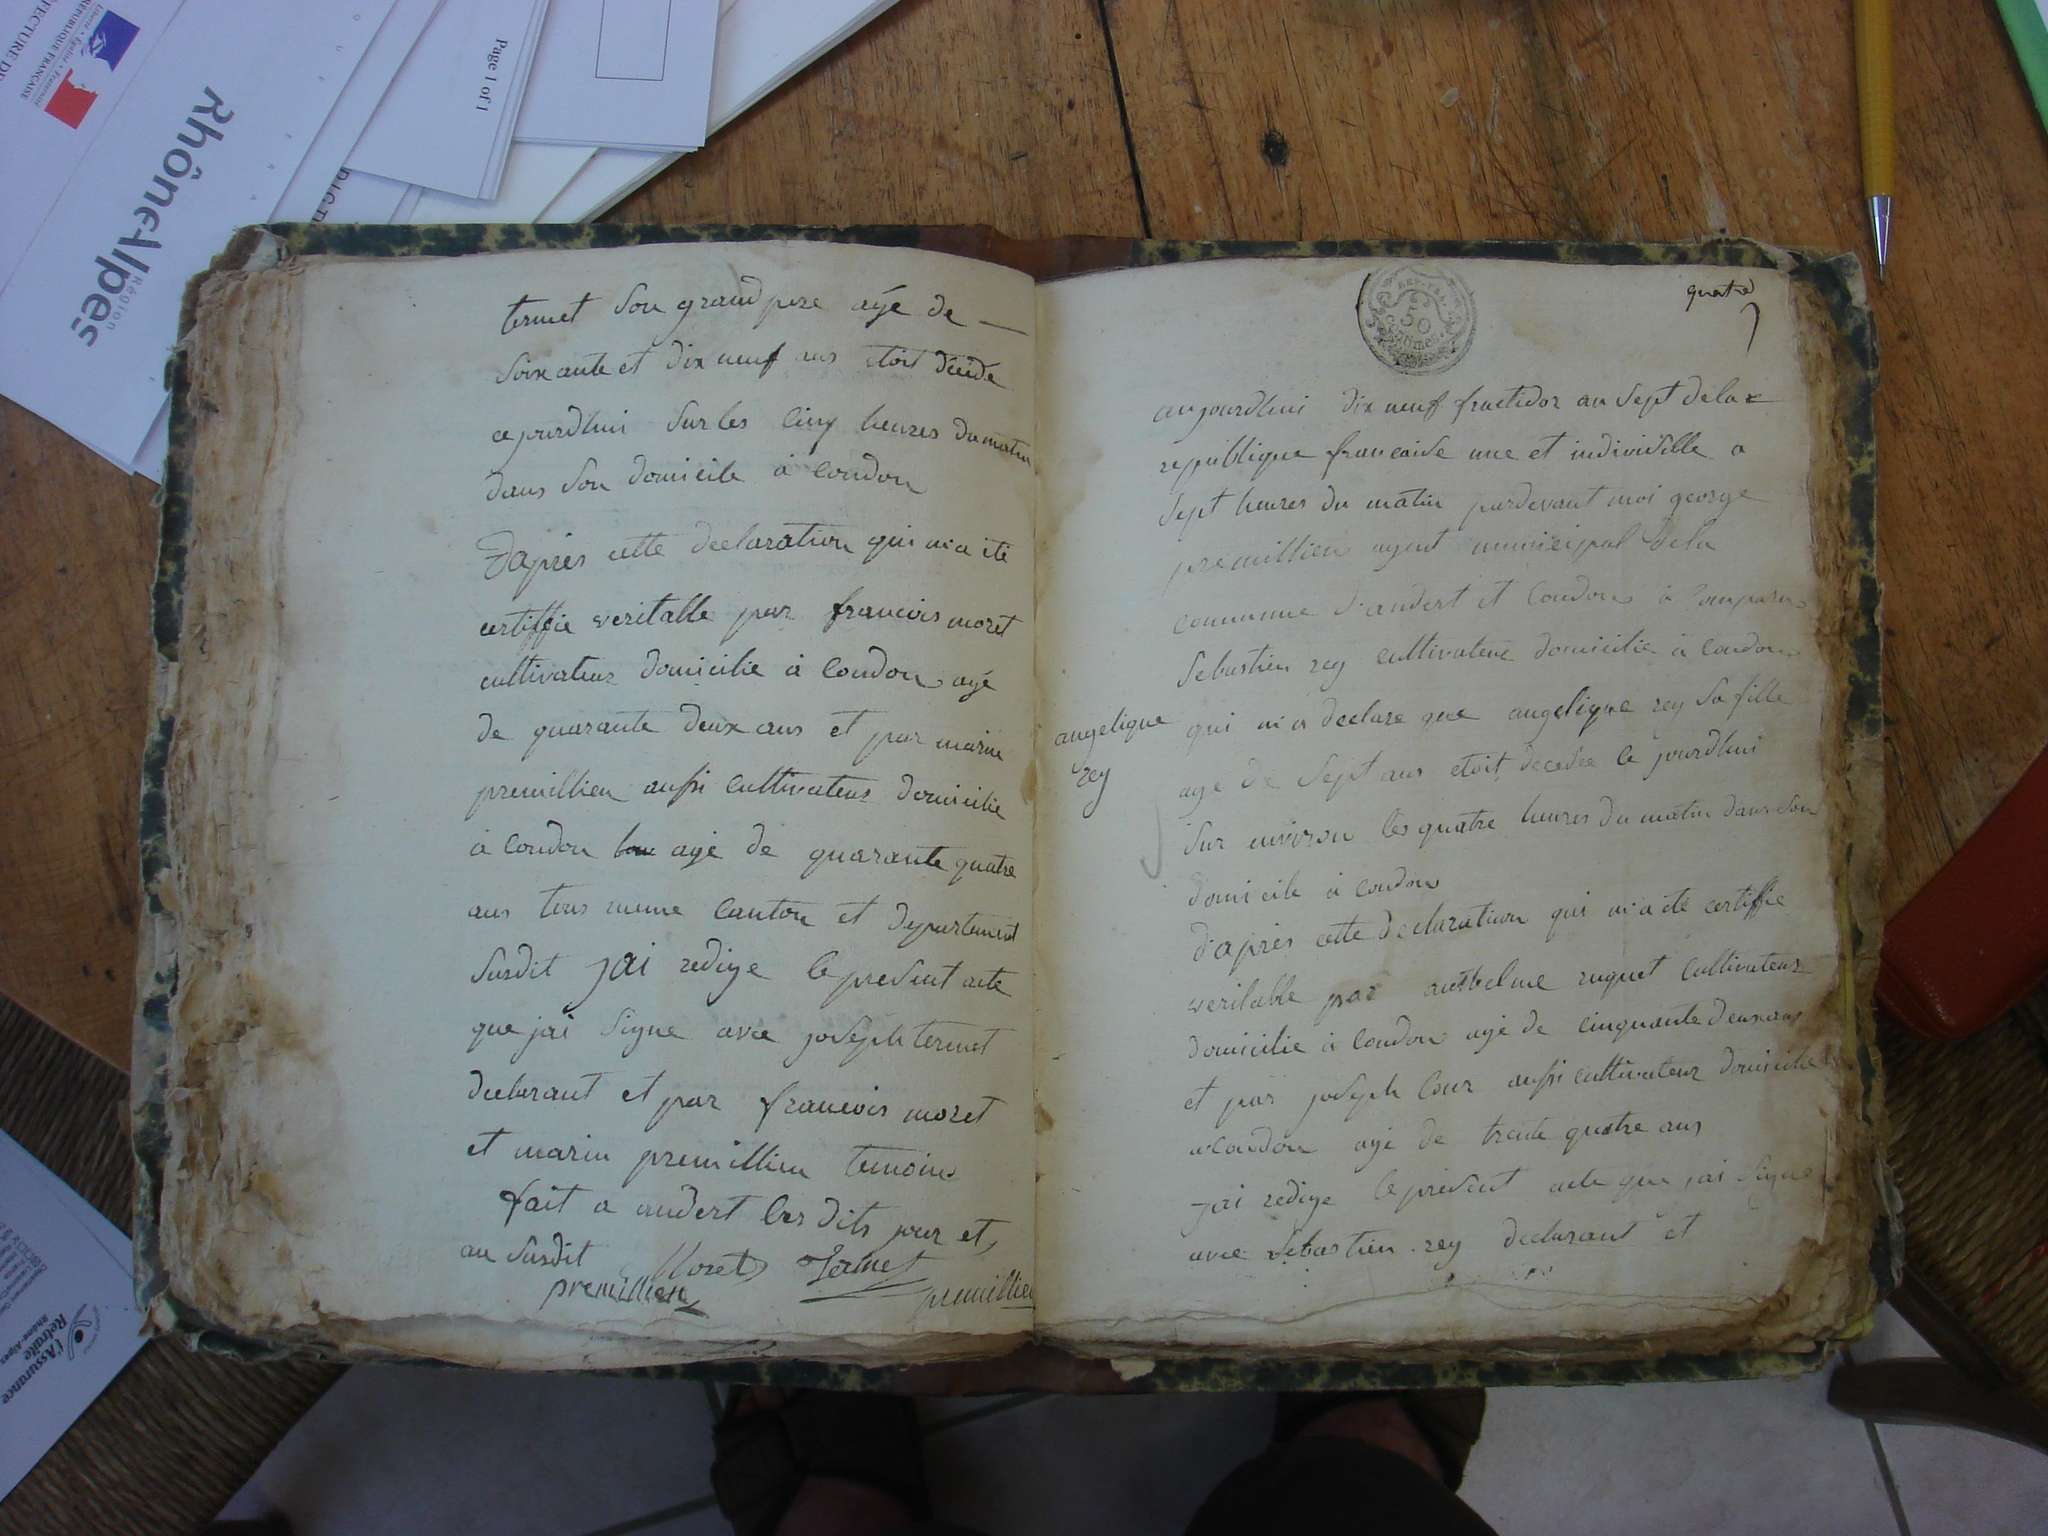 PRÉFECTURE DE
Liberté • Égalité • Fraternité
RÉPUBLIQUE FRANÇAISE
Rhône-Alpes
Région
Page 1 of 1
termet son grand pere ayé de —
soixante et dix neuf ans etoit décédé
cejourdhui sur les cinq heures du matin
dans son domicile à condon
D'après cette declaration qui m'a été
certiffie veritable par francois moret
cultivateur domicilie à condon ayé
de quarante deux ans et par marin
premillieu aussi cultivateur domicilie
à condon ayé de quarante quatre
ans tous meme canton et departement
susdit jai redige le present acte
que jai signe avec joseph termet
declarant et par francois moret
et marin premillieu temoins
fait a andert les dits jour et
an susdit
Moret Termet
premillieu premillieu
quatre
REP. FRA.
50
CENTIMES
aujourdhui dix neuf fructidor an sept dela
republique francaise une et indivisille a
sept heures du matin pardevant moi george
premillieu agent municipal dela
commune d'andert et condon à comparu
sebastien rey cultivateur domicilie à condon
qui m'a declare que angelique rey sa fille
angelique
rey
aye de sept ans etoit decedée ce jourdhui
sur environ les quatre heures du matin dans son
domicile à condon
d'après cette declaration qui m'a été certiffie
veritable par anthelme ruguet cultivateur
domicilie à condon ayé de cinquante deux ans
et par joseph cour aussi cultivateur domicilie
a condon ayé de trente quatre ans
jai redige le present acte que jai signe
avec sebastien rey declarant et
l'Assurance
Retraite
Rhône-Alpes